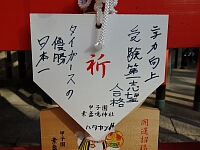 学力向上
受験第一志望
合格
祈
タイガースの
優勝
日本一
甲子園
素盞嗚神社
ハタヤン
甲子園
素盞
開運招福